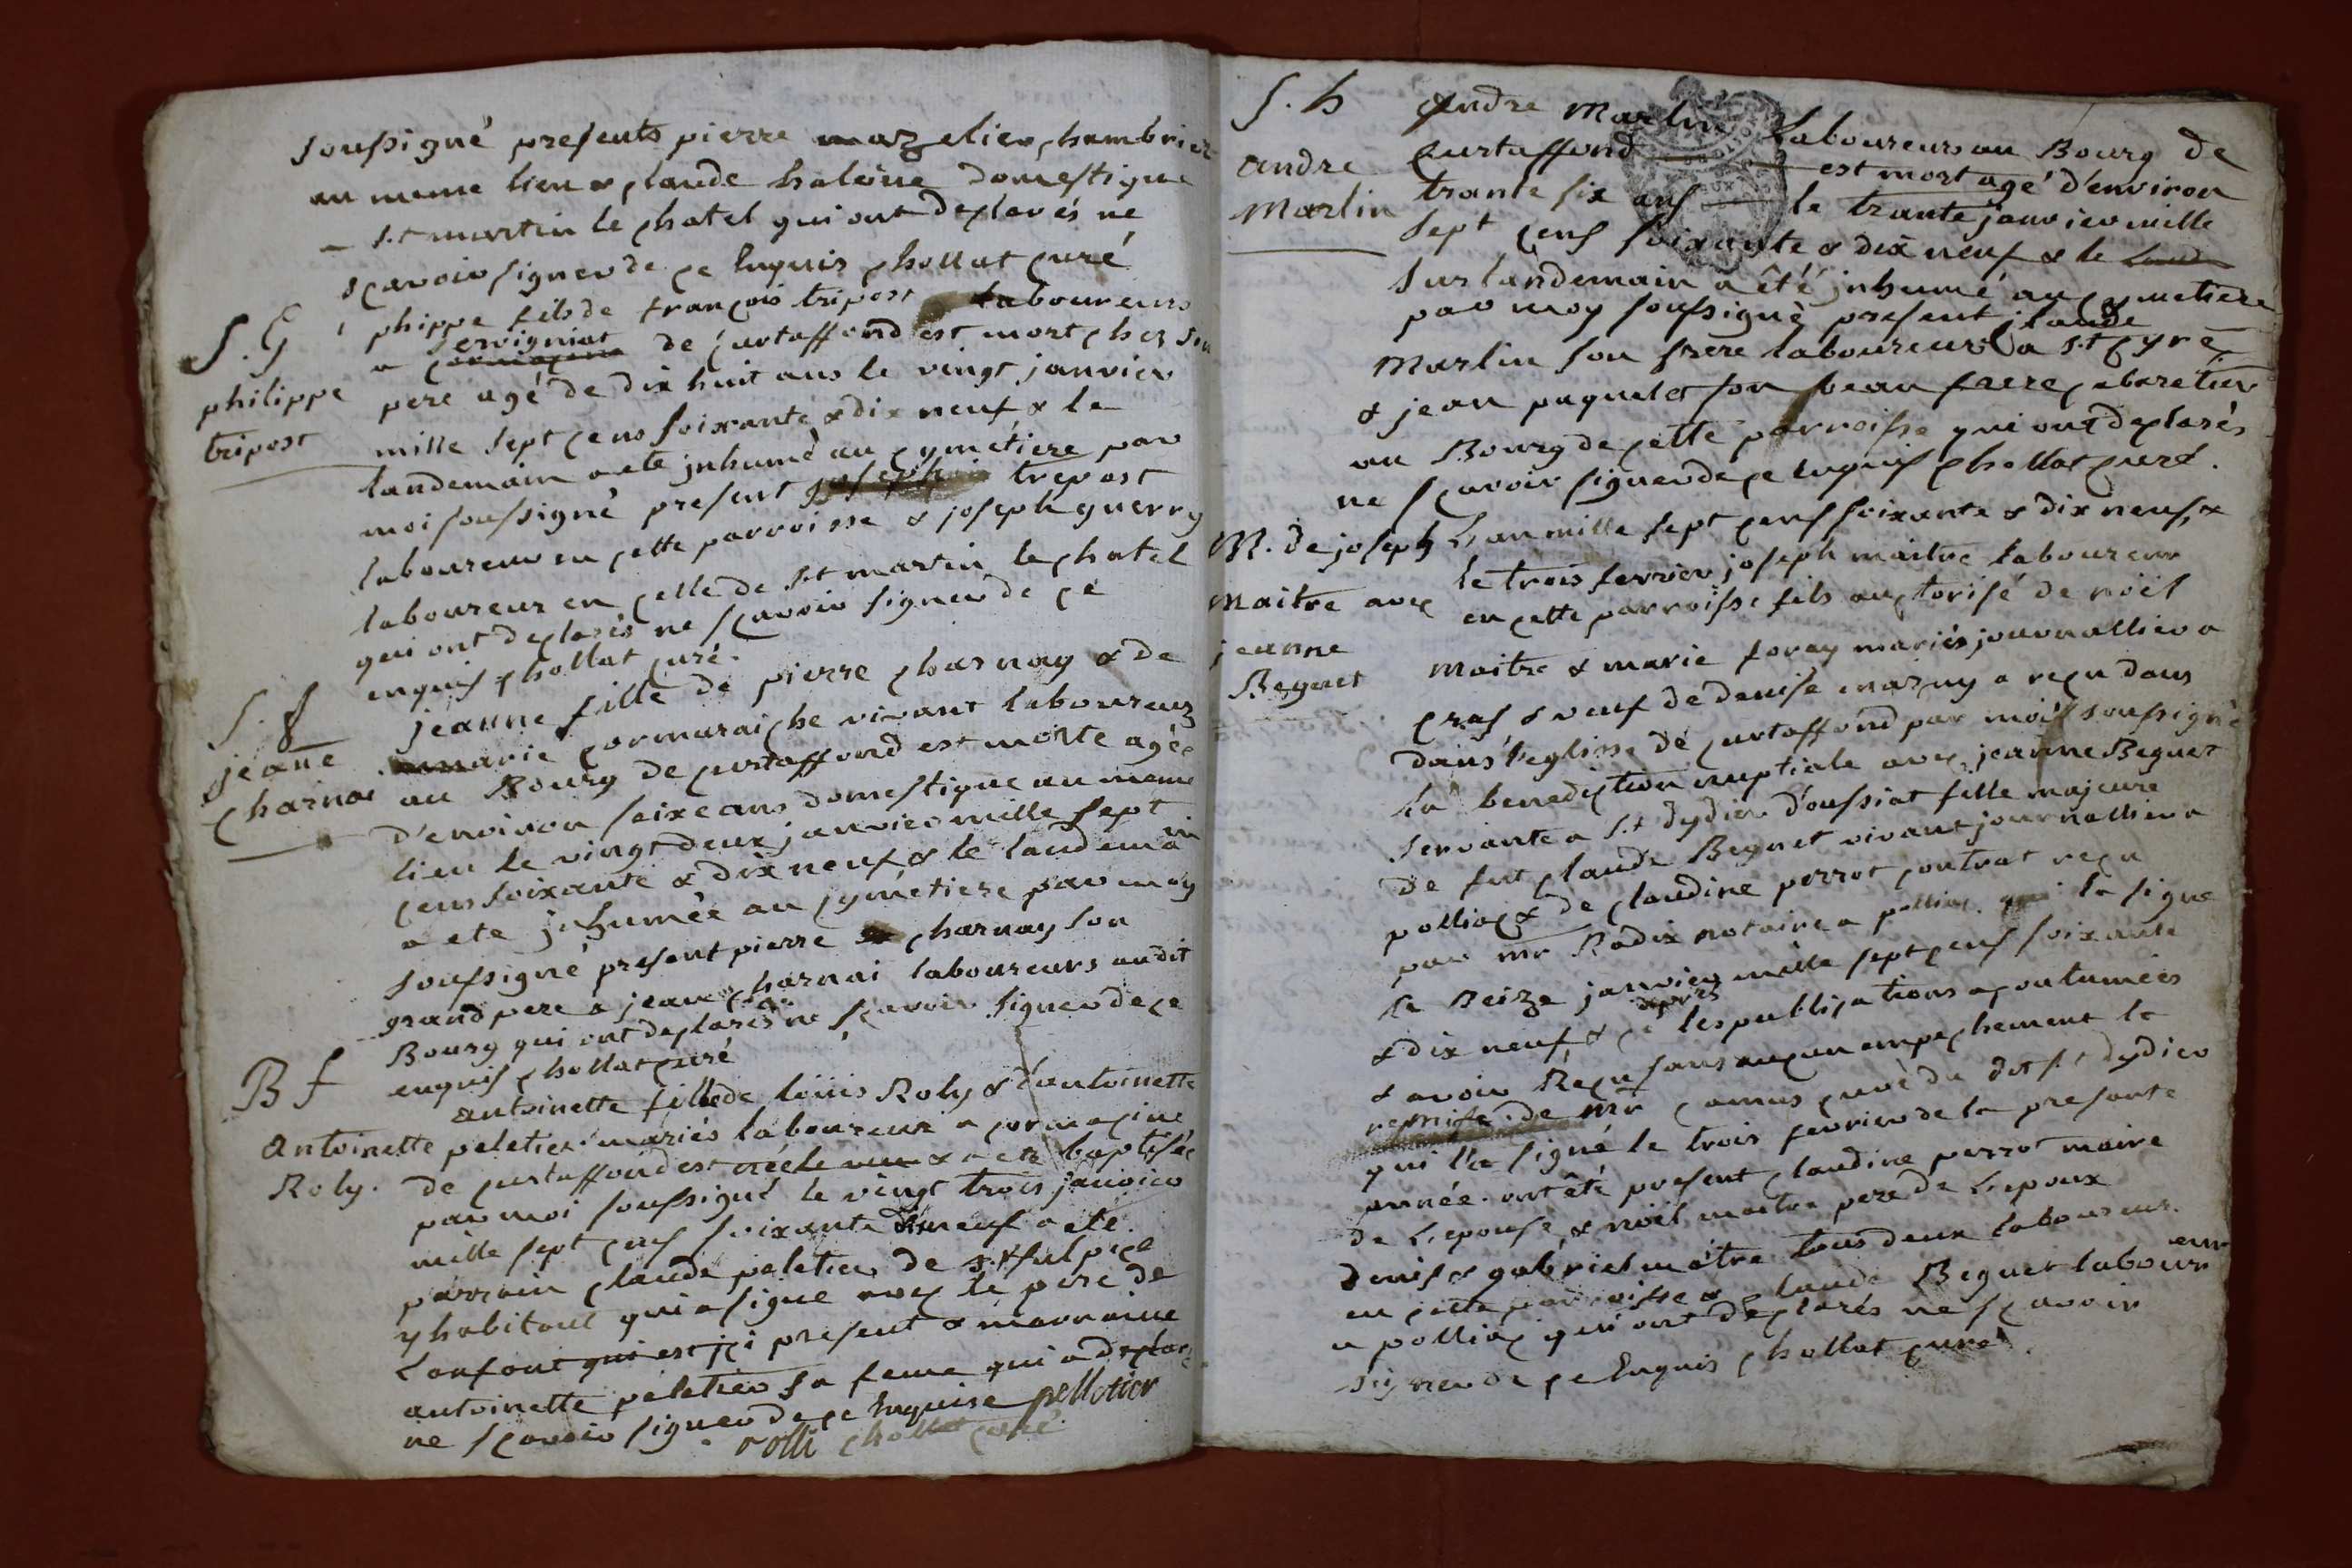 soussigné presents pierre mazelier chambrier
au meme lieu & claude haleine domestique
a St martin le chatel qui ont declarés ne
scavoir signer de ce Enquis chollat curé
S. G
philippe
tripost
phippe fils de françois tripost laboureurs
a servigniat de curtaffond est mort chez son
pere agé de dix huit ans le vingt janvier
mille sept cens soixante & dix neuf & le
landemain a ete inhumé au cymétiere par
moi soussigné present joseph trepost
laboureur en cette parroisse & joseph guerry
laboureur en celle de St martin le chatel
qui ont declarés ne scavoir signer de ce
enquis chollat curé.
S. f
jeane
charnai
jeanne fille de pierre charnay & de
marie cormaraiche vivant laboureurs
au Bourg de curtaffond est morte agée
d'environ seize ans domestique au meme
lieu le vingt deux janvier mille sept
cens soixante & dix neuf & le landemain
a ete inhumée au cymétiere par moy
soussigné present pierre charnay son
grand pere & jean charnai laboureurs audit
Bourg qui ont declarés ne scavoir signer de ce
enquis chollat curé
B f
Antoinette
Roly.
antoinette fille de loüis Roly & d'antoinette
peletier mariés laboureur a cormacine
de curtaffond est née le & a ete baptisée
par moi soussigné le vingt trois janvier
mille sept cens soixante dixneuf a ete
parrain claude peletier de St sulpice
y habitant qui a signe avec le pere de
l'enfant qui est ici present & marraine
antoinette peletier sa feme qui a declaré
ne scavoir signer de ce Enquise pelletier
rolli chollat curé
S. h
andre
Marlin
Andre Marlin Laboureurs au Bourg de
Curtaffond est mort agé d'environ
trante six ans le trante janvier mille
sept cens soixante & dix neuf & le
surlandemain a été inhumé au cymetiere
par moy soussigné present claude
Marlin son frere laboureur a St cyre
& jean paquelet son beau frere cabaretier
au Bourg de cette parroisse qui ont declarés
ne scavoir signer de ce enquis chollat curé.
M. de joseph
Maitre avec
jeanne
Beguet
L'an mille sept cens soixante & dix neuf &
le trois fevrier joseph maitre laboureur
en cette parroisse fils auctorisé de noël
Maitre & marie foray mariés journallier a
cras & veuf de denise mazuy a reçu dans
dans l'eglisse de curtaffond par moi soussigné
la benediction nuptiale avec jeanne Beguet
servante a St dydier d'oussiat fille majeure
de fut claude Beguet vivant journallier a
polliac & de claudine perrot contrat reçu
par mr Radix notaire a polliac qui la signe
le Seize janvier mille sept cens soixante
& dix neuf & ce apres les publications acoutumées
& avoir Reçu sans aucun empechement la
remise de Mr camus curé du dit St dydier
qui l'a signé le trois fevrier de la presante
année. ont été present claudine perrot maire
de L'epouse & noël maitre pere de L'epoux
denis & gabriel maitre tous deux laboureur.
en cette parroisse & claude Beguet laboureur
a polliac qui ont declarés ne scavoir
signer de ce Enquis chollat curé.